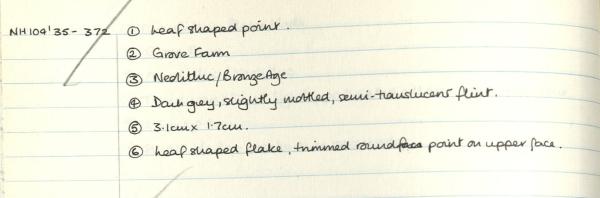 NH104'35-372 ① Leaf shaped point.
② Grove Farm
③ Neolithic/Bronze Age
④ Dark grey, slightly mottled, semi-translucent flint.
⑤ 3.1cm x 1.7cm.
⑥ Leaf shaped flake, trimmed round point on upper face.